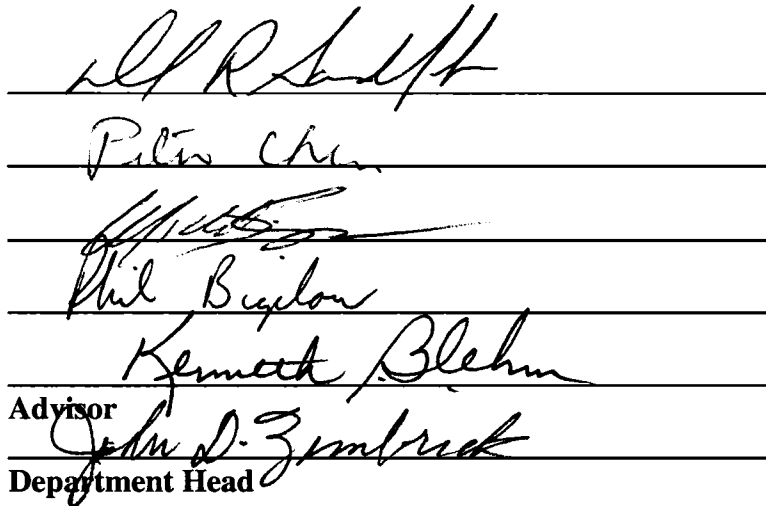 R
Peter Chen
Phil Bigelow
Kenneth Blehm
Advisor
John D. Zimbrick
Department Head